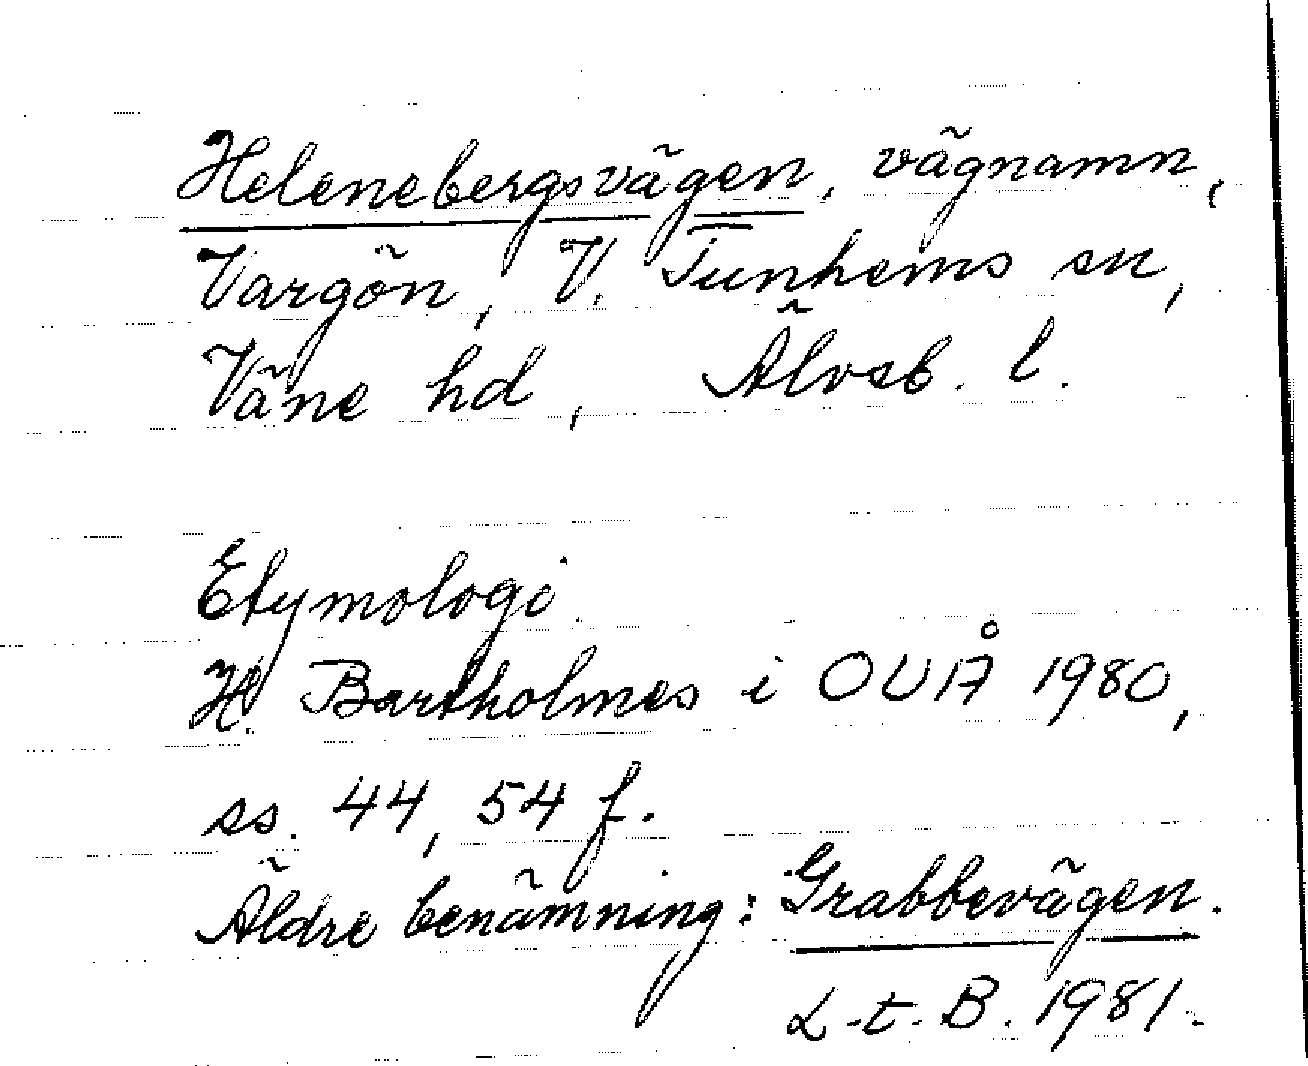 Helenebergsvägen, vägnamn,
Vargön, V. Tunhems sn,
Väne hd, Älvsb. l.
Etymologi.
H. Bartholmes i OUÅ 1980,
ss. 44, 54 f.
Äldre benämning: Grabbevägen.
L-t. B. 1981.